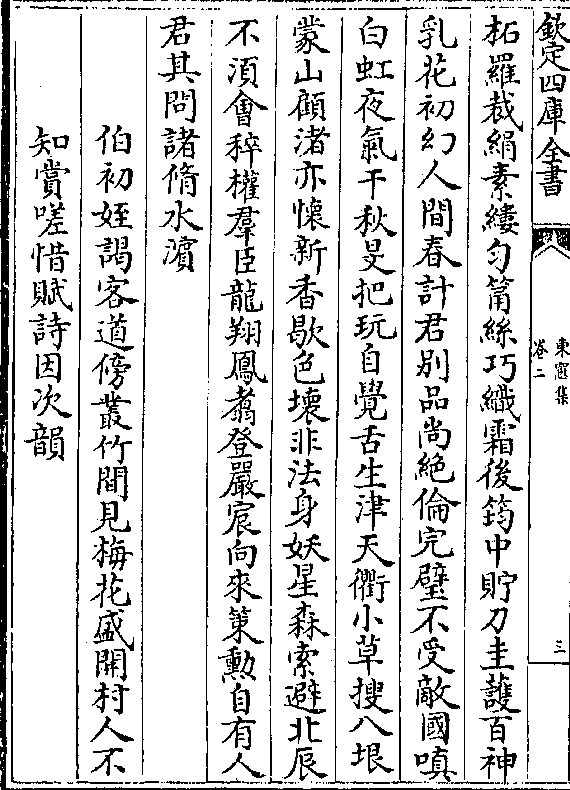 欽定四庫全書
東窻集
卷二
三
柘羅裁絹素縷匀筩絲巧織霜後筠中貯刀圭䕶百神
乳花初幻人間春計君别品尚絶倫完璧不受敵國嗔
白虹夜氣干秋旻把玩自覺舌生津天衢小草搜八垠
蒙山顧渚亦懐新香歇色壊非法身妖星森索避北辰
不湏㑹稡權羣臣龍翔鳳翥登嚴宸向來䇿勲自有人
君其問諸脩水濵
伯初姪謁客道傍叢竹間見梅花盛開村人不
知賞嗟惜賦詩因次韻